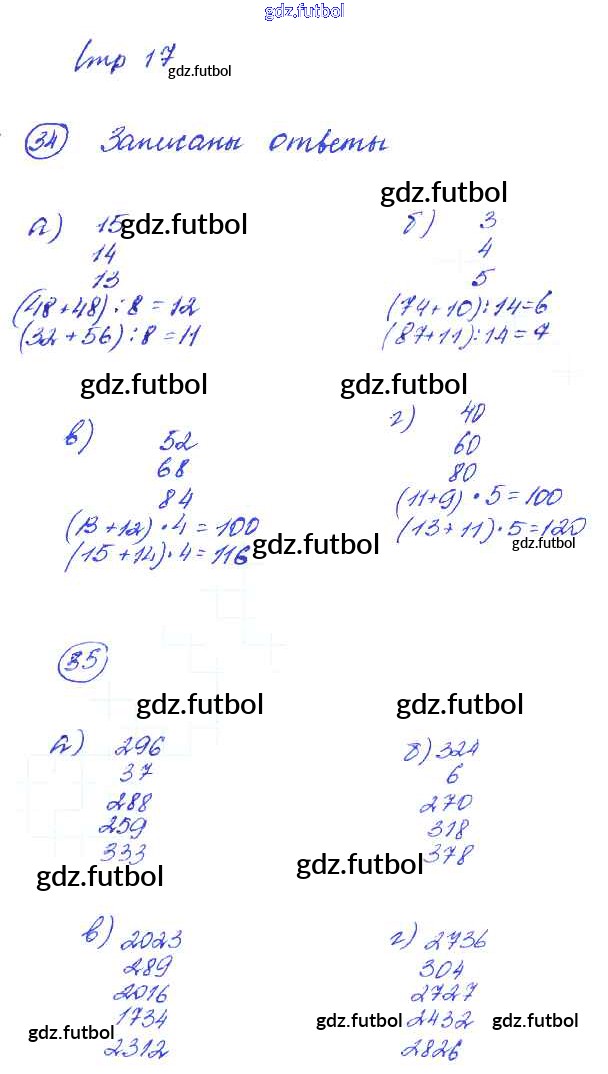 gdz.futbol
Стр 17
gdz.futbol
34 Записаны ответы
gdz.futbol
а) 15 gdz.futbol
14
13
(48+48):8=12
(32+56):8=11
б) 3
4
5
(74+10):14=6
(87+11):14=7
gdz.futbol gdz.futbol
в) 52
68
84
(13+12)·4=100
(15+14)·4=116
gdz.futbol
г) 40
60
80
(11+9)·5=100
(13+11)·5=120
gdz.futbol
35
gdz.futbol gdz.futbol
а) 296
37
288
259
333
gdz.futbol
б) 324
6
270
318
378
gdz.futbol
в) 2023
289
2016
1734
2312
gdz.futbol
г) 2736
304
2727
2432
2826
gdz.futbol gdz.futbol